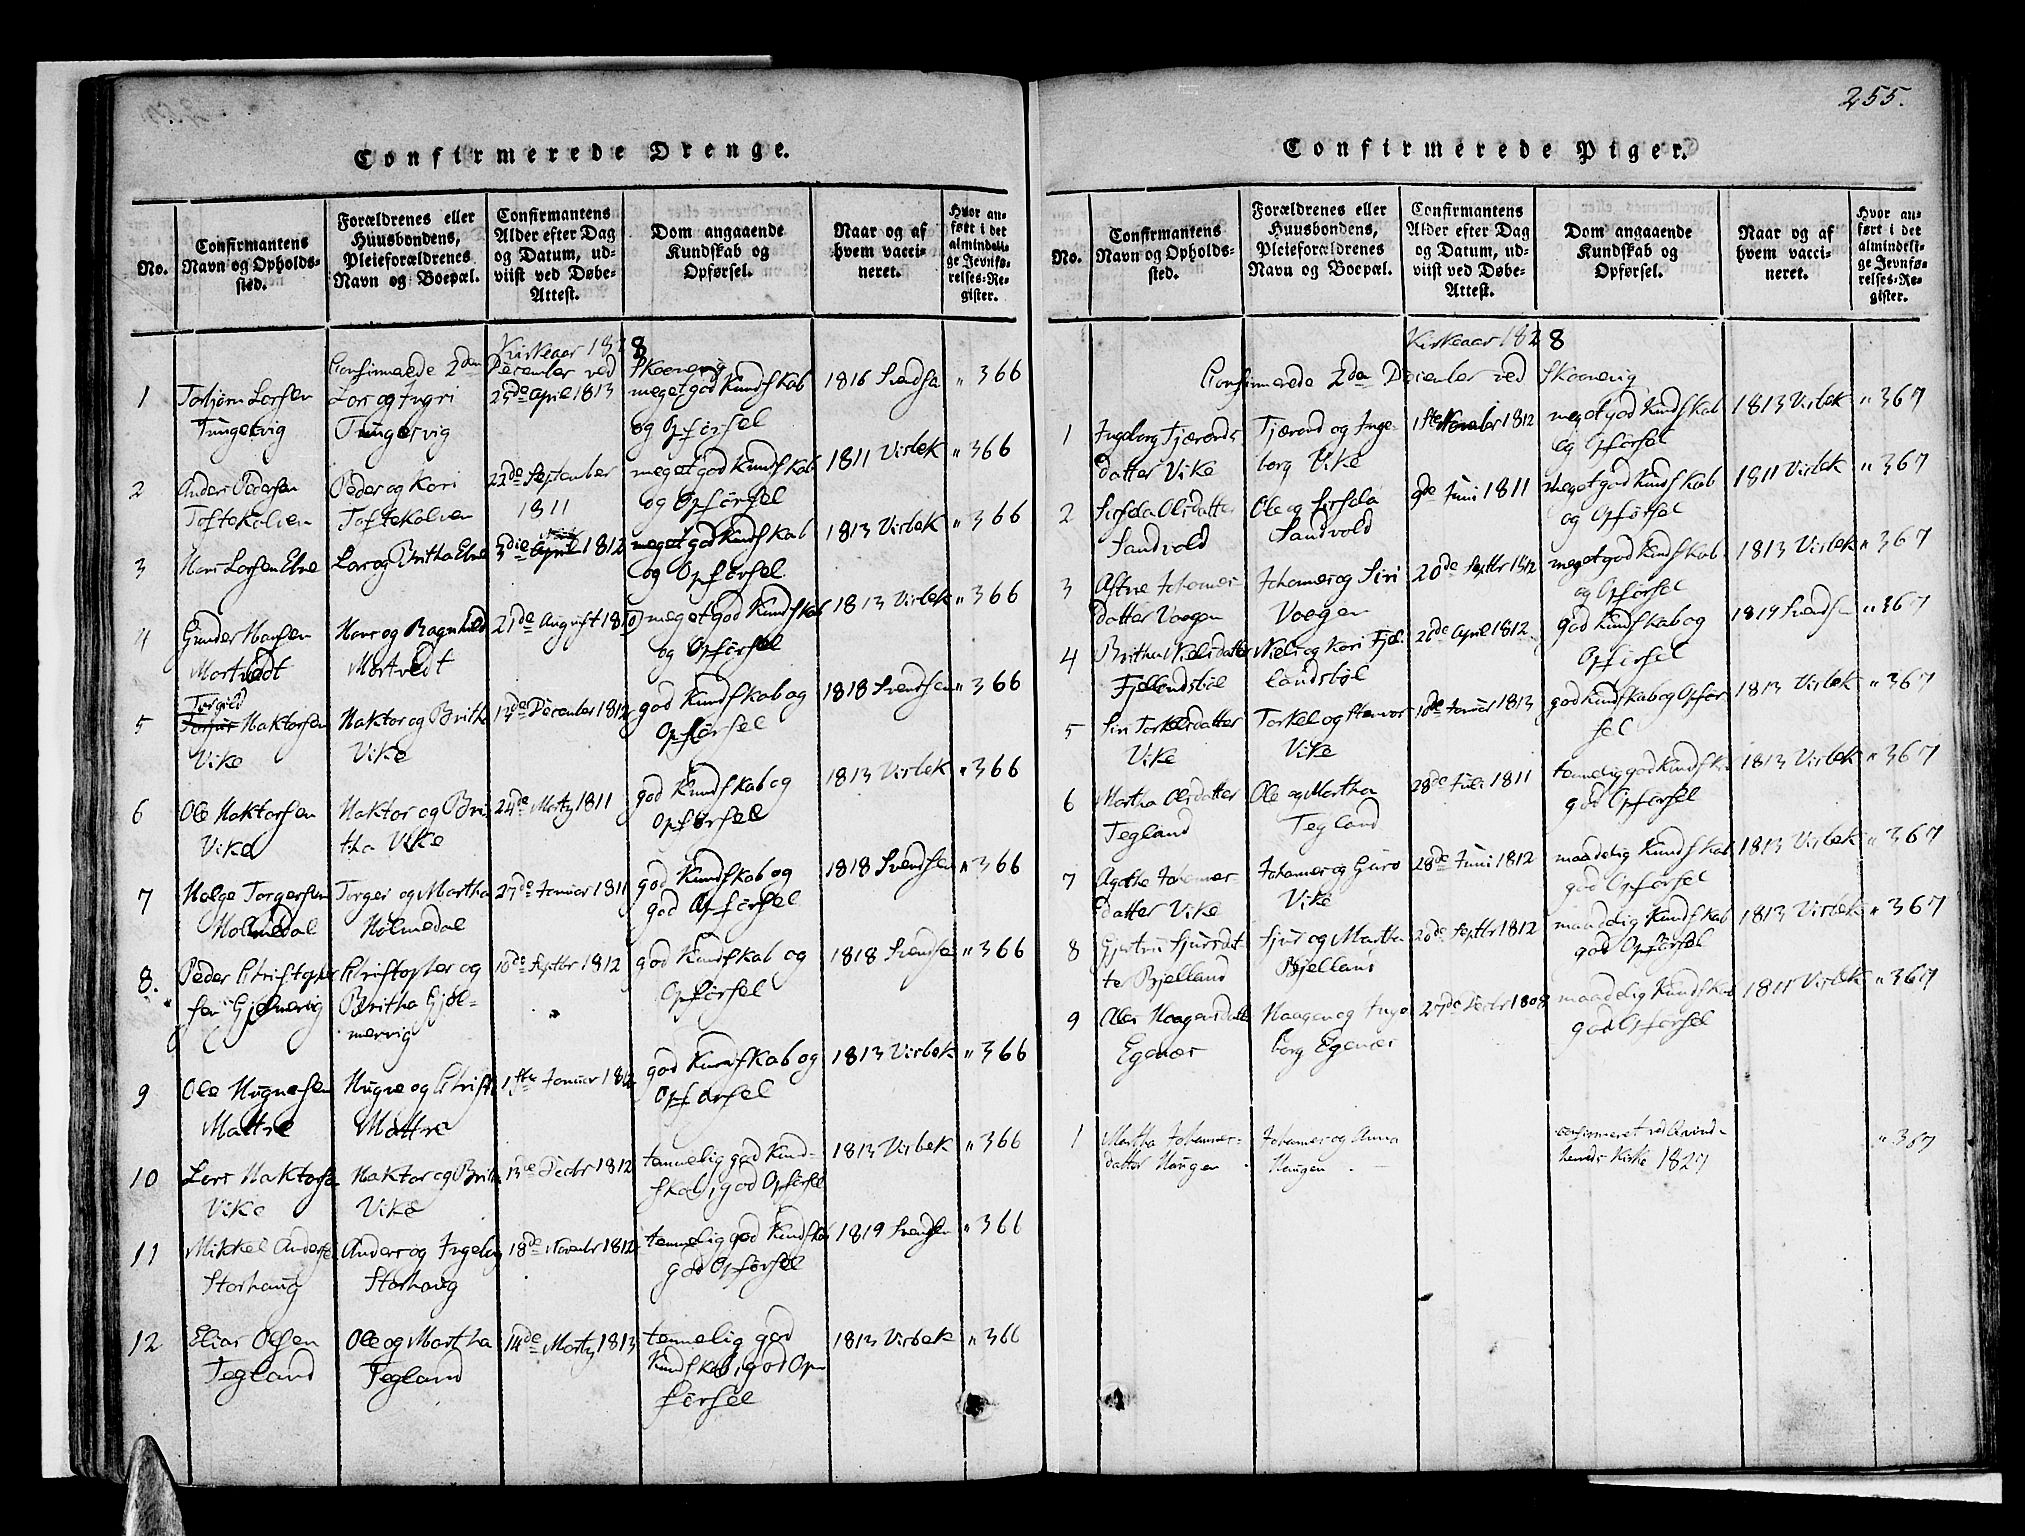 255.
Confirmerede Drenge.
No.
Confirmantens
Navn og Opholds-
sted.
Forældrenes eller
Huusbondens,
Pleieforældrenes
Navn og Boepæl.
Confirmantens
Alder efter Dag
og Datum, ud-
viist ved Døbe-
Attest.
Dom angaaende
Kundskab og
Opførsel.
Naar og af
hvem vacci-
neret.
Hvor an-
ført i det
almindeli-
ge Jevnfø-
relses-Re-
gister.
Kirkeaar 1828
Confirmerede 2den December ved Skonevig
1 Torbjørn Larsen Lars og Ingri 25de April 1813 meget god Kundskab 1816 Svendsen " 366
Tungesvig Tungesvig og Opførsel
2 Anders Pedersen Peder og Kari 22de September meget god Kundskab 1811 Virbek " 366
Toftekalven Toftekalven 1811 og Opførsel
3 Hans Larsen Ebne Lars og Britha Ebne 3die April 1812 meget god Kundskab 1813 Virbek " 366
og Opførsel
4 Gunder Hansen Hans og Ragnhild 21de August meget god Kundskab 1813 Virbek " 366
Mortvedt Mortvedt og Opførsel
Torgild
5 Haktorsen Haktor og Britha 13de December 1812 god Kundskab og 1818 Svendsen " 366
Vike Vike Opførsel
6 Ole Haktorsen Haktor og Bri 24de Martz 1811 god Kundskab og 1813 Virbek " 366
Vike tha Vike Opførsel
7 Helge Torgersen Torger og Martha 27de Januar 1811 god Kundskab og 1818 Svendsen " 366
Holmedal Holmedal god Opførsel
8. Peder Christopher Christopher og 10de Septbr 1812 god Kundskab og 1818 Svendsen " 366
sen Gjelmervig Britha Gjel- Opførsel
mervig
9 Ole Mognesen Mogne og Christi 1ste Januar god Kundskab og 1813 Virbek " 366
Mattre Mattre Opførsel
10 Lars Haktorsen Haktor og Britha 13de Decbr 1812 temmelig god Kund- 1813 Virbek " 366
Vike Vike skab, god Opførsel
11 Mikkel Andersen Anders og Ingeborg 18de Novembr 1812 temmelig god Kundskab 1819 Svendsen " 366
Storhaug Storhaug god Opførsel
12 Elias Olsen Ole og Martha 14de Martz 1813 temmelig god 1813 Virbek " 366
Tegland Tegland Kundskab, god Op
førsel
Confirmerede Piger.
No.
Confirmantens
Navn og Opholds-
sted.
Forældrenes eller
Huusbondens,
Pleieforældrenes
Navn og Boepæl.
Confirmantens
Alder efter Dag
og Datum, ud-
viist ved Døbe-
Attest.
Dom angaaende
Kundskab og
Opførsel.
Naar og af
hvem vacci-
neret.
Hvor an-
ført i det
almindeli-
ge Jevnfø-
relses-Re-
gister.
Kirkeaar 1828
Confirmerede 2den December ved Skonevig
1 Ingeborg Tjærands Tjærand og Inge- 1ste November 1812 meget god Kundskab 1813 Virbek " 367
datter Vike borg Vike og Opførsel
2 Sirsela Olsdatter Ole og Sirsela 9de Juni 1811 meget god Kundskab 1811 Virbek " 367
Sandvold Sandvold og Opførsel
3 Johannes- Johannes og Siri 20de Septbr 1812 meget god Kundskab 1813 Virbek " 367
datter Vaagen Vaagen og Opførsel
4 Britha Nielsdatter Niels og Kari Fjel- 26de April 1812. god Kundskab og 1819 Svendsen " 367
Fjellandsbøl landsbøl Opførsel
5 Siri Torkelsdatter Torkel og 10de Januar 1813 god Kundskab og Opfør 1813 Virbek " 367
Vike Vike sel
6 Martha Olsdatter Ole og Martha 28de Juli 1811 temmelig god Kundskab 1813 Virbek " 367
Tegland Tegland god Opførsel
7 Agathe Johannes- Johannes og Guro 28de Juni 1812 maadelig Kundskab 1813 Virbek " 367
datter Vike Vike god Opførsel
8 Gjertru Sjursdat- Sjur og Martha 20de Septbr 1812 maadelig Kundskab 1813 Virbek " 367
ter Bjelland Bjelland god Opførsel
9 Haagensdatter Haagen og Inge 27de maadelig Kundskab 1811 Virbek " 367
Egenæs borg Egenæs god Opførsel
1 Martha Johannes- Johannes og Anna confirmeret ved " 367
datter Haugen Haugen Kirke 1827